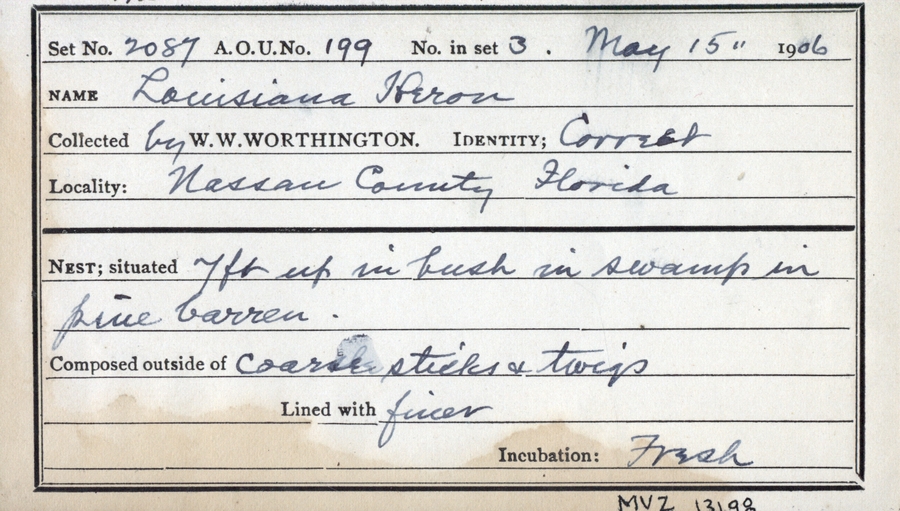 Set No. 2087 A.O.U.No. 199 No. in set 3. May 15" 1906
NAME Louisiana Heron
Collected by W.W.WORTHINGTON. IDENTITY; Correct
Locality: Nassau County Florida
NEST; situated 7ft up in bush in swamp in
pine barren.
Composed outside of coarse sticks & twigs
Lined with finer
Incubation: Fresh
MVZ 13198